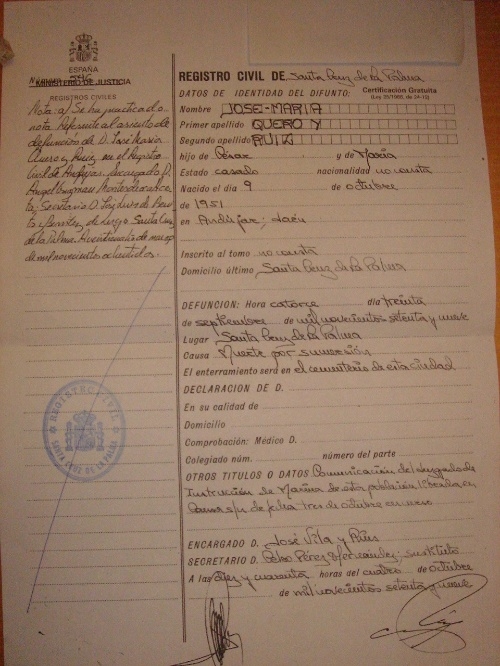 ESPAÑA
MINISTERIO DE JUSTICIA
REGISTROS CIVILES
Nota: a) Se ha practicado
nota referente al asiento de
defunción de D. José María
Quero y Ruiz, en el Registro
Civil de Andújar. Encargado D.
Angel
Secretario D. José Luis de
y de Santa Cruz
de la Palma a veinticuatro de mayo
de mil novecientos ochenta y dos.
REGISTRO CIVIL
SANTA CRUZ DE LA PALMA
REGISTRO CIVIL DE Santa Cruz de la Palma
DATOS DE IDENTIDAD DEL DIFUNTO: Certificación Gratuita
(Ley 25/1986, de 24-12)
Nombre JOSE-MARIA
Primer apellido QUERO Y
Segundo apellido RUIZ
hijo de y de María
Estado casado nacionalidad no consta
Nacido el día 9 de octubre
de 1951
en Andújar, Jaén
Inscrito al tomo no consta
Domicilio último Santa Cruz de la Palma
DEFUNCION: Hora catorce día treinta
de septiembre de mil novecientos setenta y nueve
Lugar Santa Cruz de la Palma
Causa Muerte por sumersión
El enterramiento será en el cementerio de esta ciudad
DECLARACION DE D.
En su calidad de
Domicilio
Comprobación: Médico D.
Colegiado núm. número del parte
OTROS TITULOS O DATOS Comunicación del Juzgado de
Instrucción de Marina de esta población librada en
de fecha tres de octubre en curso
ENCARGADO D. José Vila y
SECRETARIO D. Celso Pérez Hernández: sustituto
A las diez y cuarenta horas del cuatro de octubre
de mil novecientos setenta y nueve